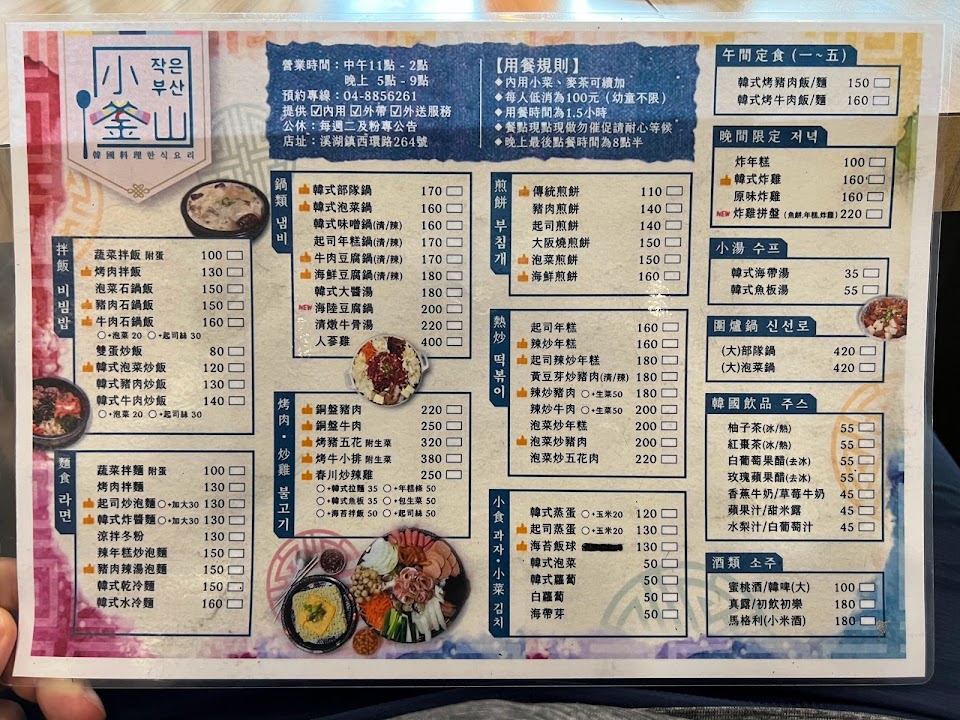 小釜山
작은
부산
韓國料理 한식요리
營業時間：中午11點 - 2點
晚上 5點 - 9點
預約專線：04-8856261
提供 ☑內用 ☑外帶 ☑外送服務
公休：每週二及粉專公告
店址：溪湖鎮西環路264號
【用餐規則】
◆內用小菜、麥茶可續加
◆每人低消為100元（幼童不限）
◆用餐時間為1.5小時
◆餐點現點現做勿催促請耐心等候
◆晚上最後點餐時間為8點半
拌飯 비빔밥
蔬菜拌飯 附蛋 100
烤肉拌飯 130
泡菜石鍋飯 150
豬肉石鍋飯 150
牛肉石鍋飯 160
○+泡菜 20 ○+起司絲 30
雙蛋炒飯 80
韓式泡菜炒飯 120
韓式豬肉炒飯 130
韓式牛肉炒飯 140
○+泡菜 20 ○+起司絲 30
麵食 라면
蔬菜拌麵 附蛋 100
烤肉拌麵 130
起司炒泡麵 ○+加大30 130
韓式炸醬麵 ○+加大30 130
涼拌冬粉 130
辣年糕炒泡麵 150
豬肉辣湯泡麵 150
韓式乾冷麵 150
韓式水冷麵 160
鍋類 냄비
韓式部隊鍋 170
韓式泡菜鍋 160
韓式味噌鍋(清/辣) 160
起司年糕鍋(清/辣) 170
牛肉豆腐鍋(清/辣) 170
海鮮豆腐鍋(清/辣) 180
韓式大醬湯 180
NEW 海陸豆腐鍋 200
清燉牛骨湯 220
人蔘雞 400
烤肉・炒雞 불고기
銅盤豬肉 220
銅盤牛肉 250
烤豬五花 附生菜 320
烤牛小排 附生菜 380
春川炒辣雞 250
○+韓式拉麵 35 ○+年糕條 50
○+韓式魚板 35 ○+包生菜 50
○+海苔拌飯 50 ○+起司絲 50
煎餅 부침개
傳統煎餅 110
豬肉煎餅 140
起司煎餅 140
大阪燒煎餅 150
泡菜煎餅 150
海鮮煎餅 160
熱炒 떡볶이
起司年糕 160
辣炒年糕 160
起司辣炒年糕 180
黃豆芽炒豬肉(清/辣) 180
辣炒豬肉 ○+生菜50 180
辣炒牛肉 ○+生菜50 200
泡菜炒年糕 200
泡菜炒豬肉 200
泡菜炒五花肉 220
小食 과자・小菜 김치
韓式蒸蛋 ○+玉米20 120
起司蒸蛋 ○+玉米20 130
海苔飯球 130
韓式泡菜 50
韓式蘿蔔 50
白蘿蔔 50
海帶芽 50
午間定食 (一~五)
韓式烤豬肉飯/麵 150
韓式烤牛肉飯/麵 160
晚間限定 저녁
炸年糕 100
韓式炸雞 160
原味炸雞 160
NEW 炸雞拼盤 (魚餅.年糕.炸雞) 220
小湯 수프
韓式海帶湯 35
韓式魚板湯 55
圍爐鍋 신선로
(大)部隊鍋 420
(大)泡菜鍋 420
韓國飲品 주스
柚子茶(冰/熱) 55
紅棗茶(冰/熱) 55
白葡萄果醋(去冰) 55
玫瑰蘋果醋(去冰) 55
香蕉牛奶/草莓牛奶 45
蘋果汁/甜米露 45
水梨汁/白葡萄汁 45
酒類 소주
蜜桃酒/韓啤(大) 100
真露/初飲初樂 180
馬格利(小米酒) 180